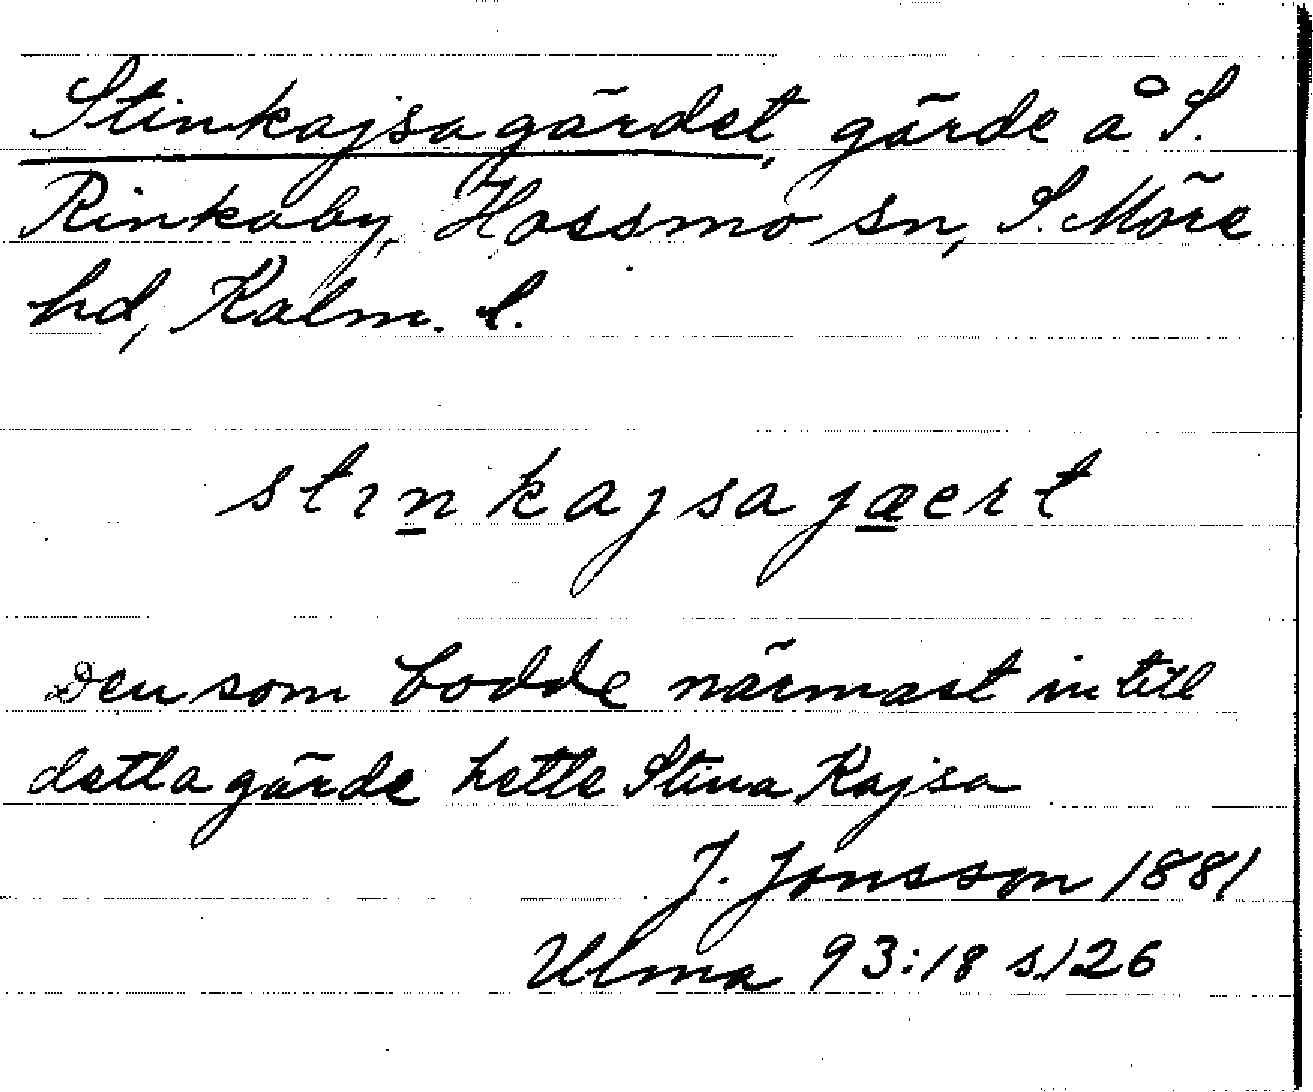 Stinkajsagärdet, gärde å S.
Rinkaby, Hossmo sn, S. Möre
hd, Kalm. l.
stınkajsajæert
Den som bodde närmast in till
detta gärde hette Stina Kajsa
J. Jonsson 1881
Ulma 93:18 s. 126